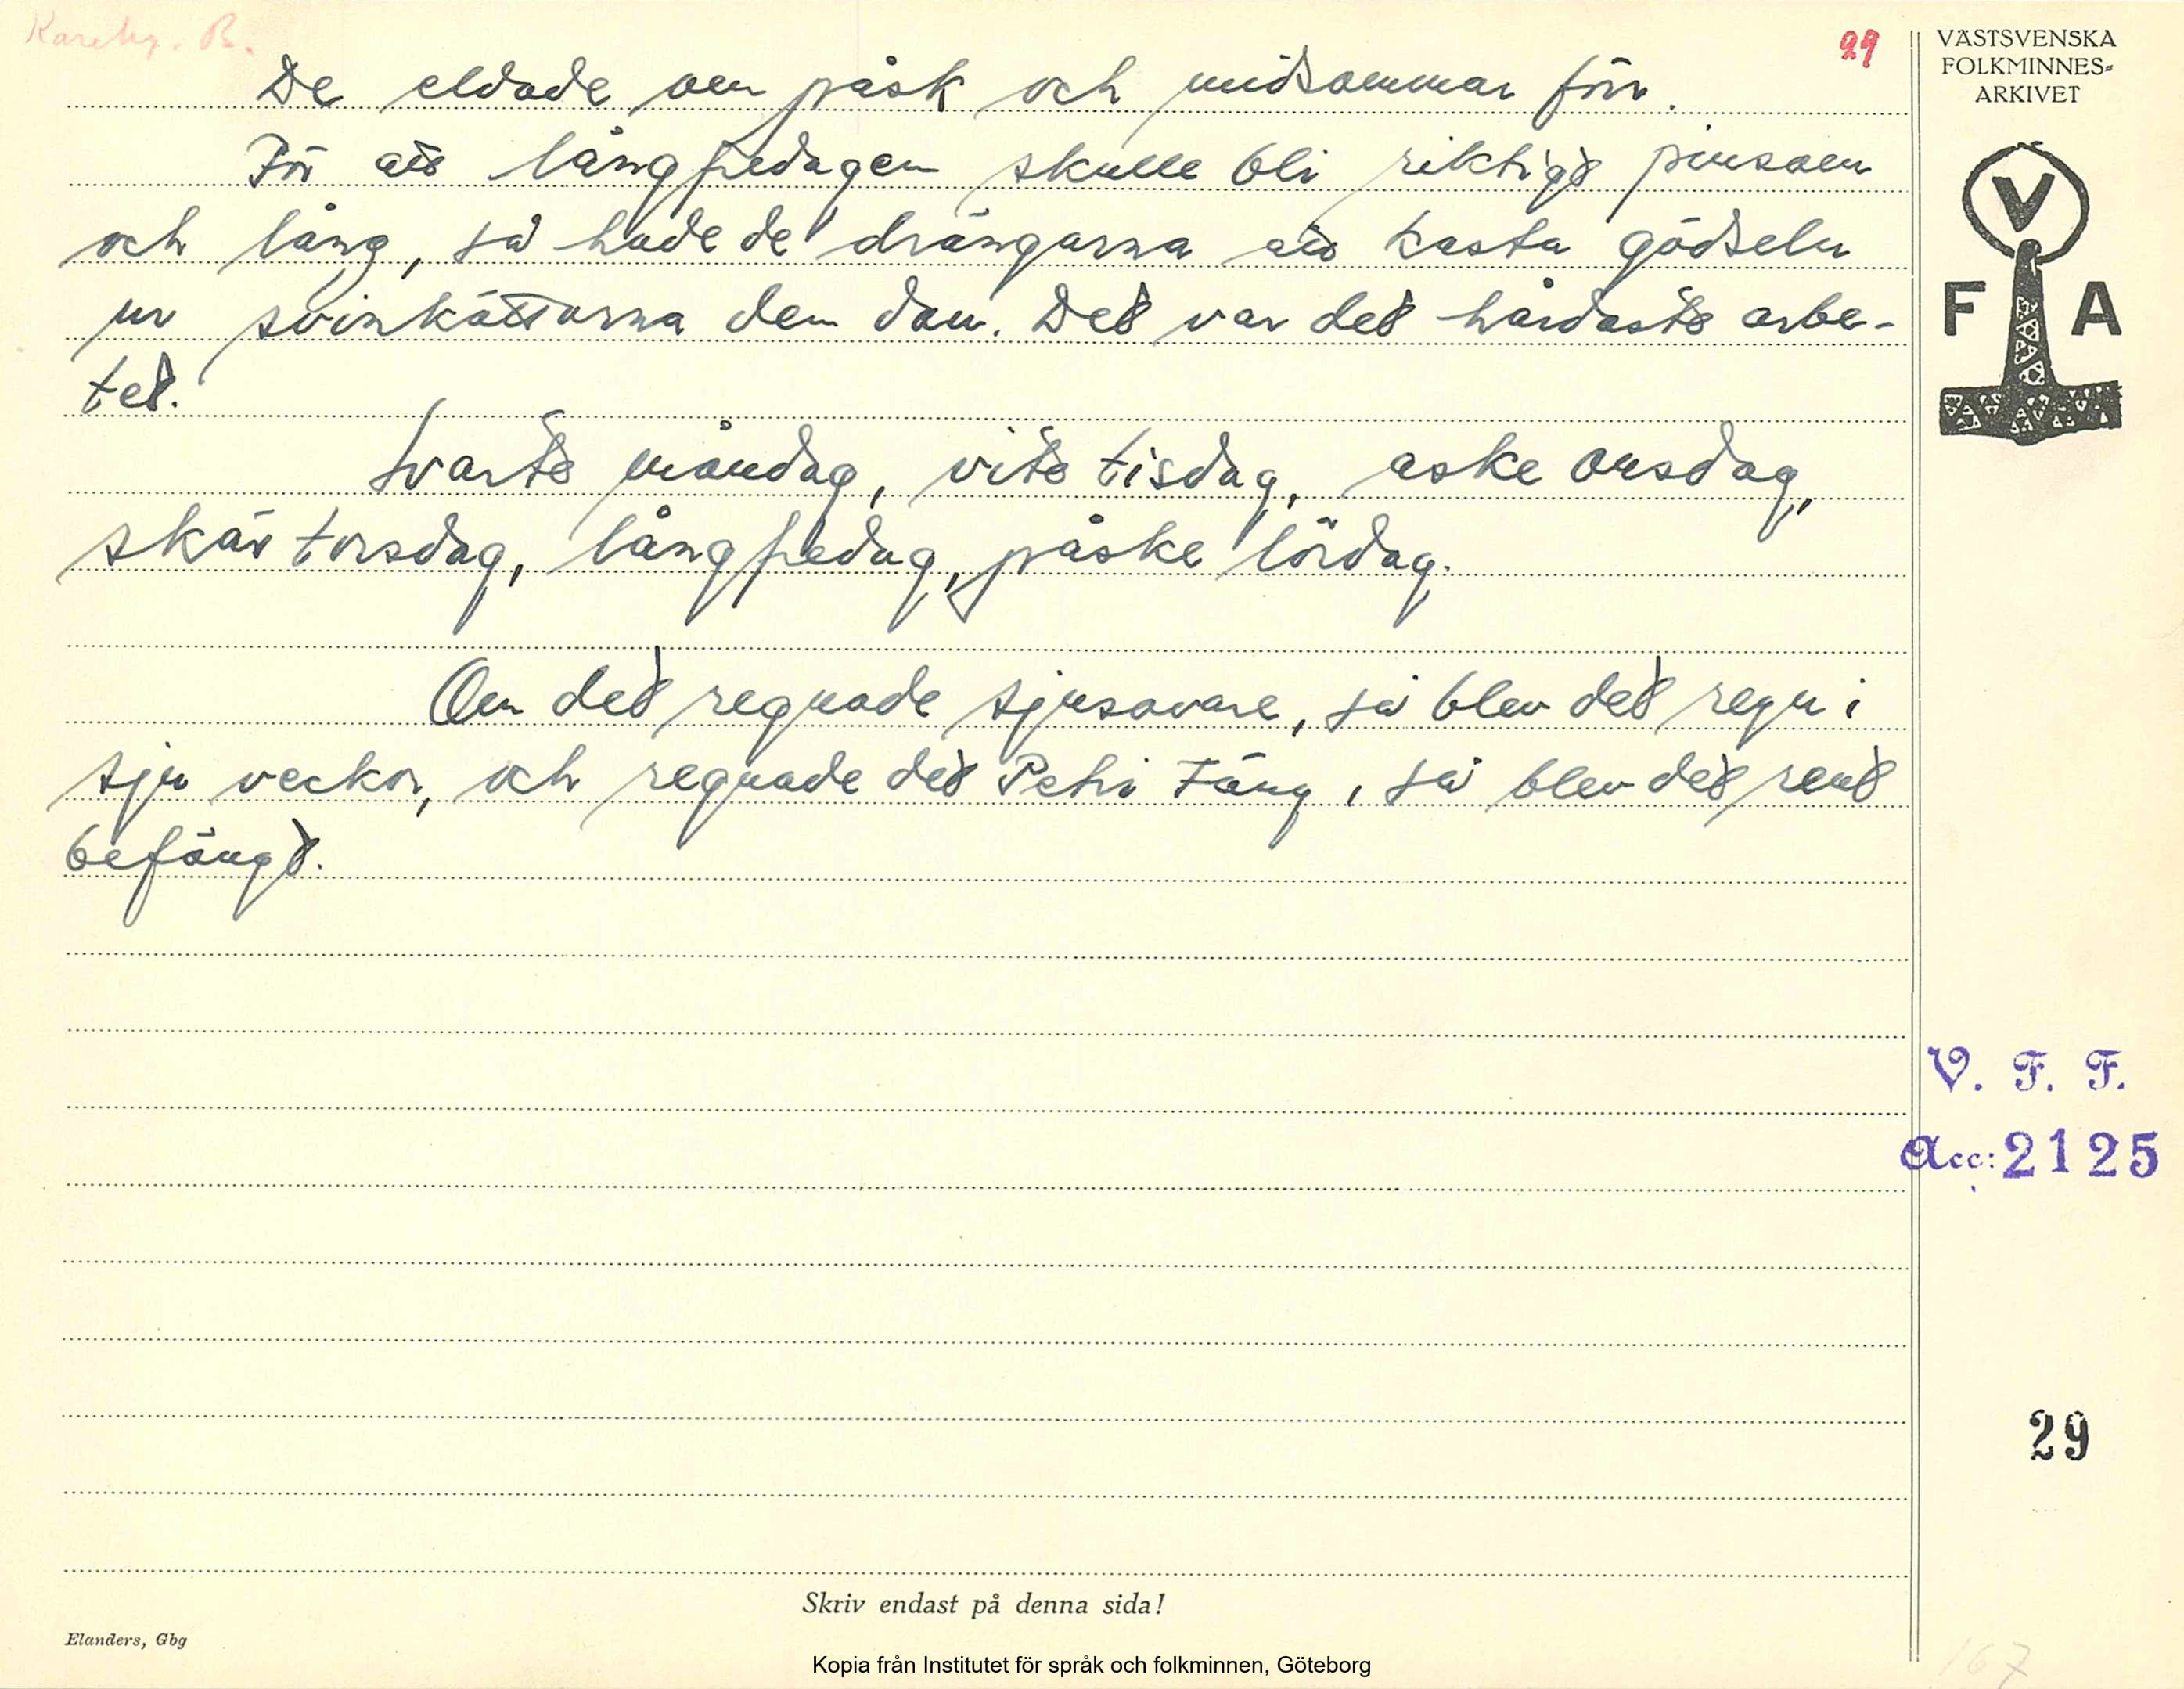 Kareby. B.
29
VÄSTSVENSKA
FOLKMINNES=
ARKIVET
V
F A
De eldade om påsk och midsommar förr.
För att långfredagen skulle bli riktigt pinsam
och lång, så hade de drängarna att kasta gödseln
ur svinkättarna den dan. Det var det hårdaste arbe-
tet.
Svarte måndag, vite tisdag, aske onsdag,
skär torsdag, långfredag, påske lördag.
Om det regnade sjusovare, så blev det regn i
sju veckor, och regnade det Petri Fäng, så blev det rent
befängt.
V. F. F.
Acc: 2125
29
Skriv endast på denna sida!
Elanders, Gbg
167
Kopia från Institutet för språk och folkminnen, Göteborg